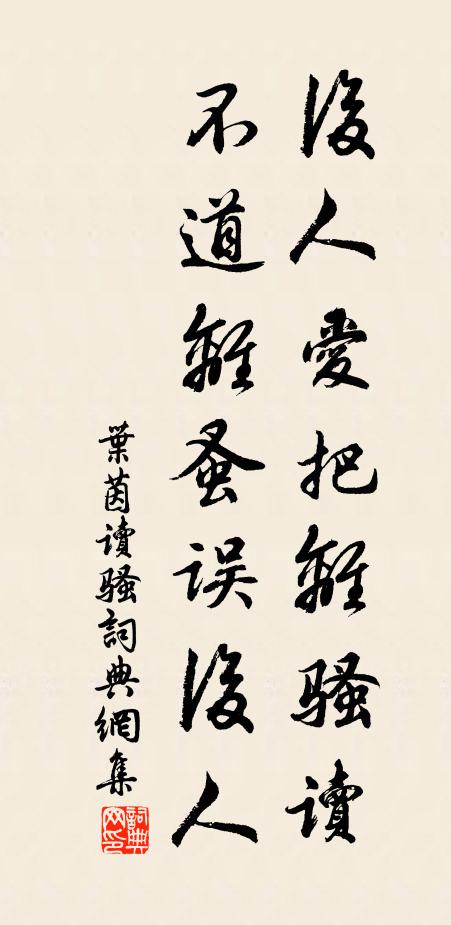 後人愛把離騷讀
不道離蚤誤後人
葉茵讀騷詞典網集
詞典
网印